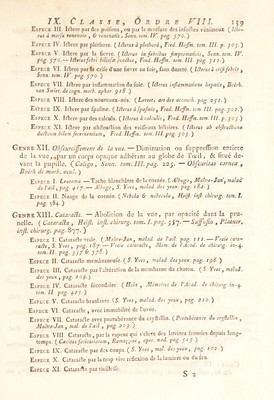 IX. CLASSE, ORDRE VIII. 139
ESPECE III. Ictere par des poisons, ou par la morsure des insectes vénimeux (Icterus à morsu venenato, & venenatis. Senn. tom. IV. pag. 570.)
ESPECE IV. Ictere par pléthore. (Icterus à plethorâ, Fred. Hoffm. tom. III. p. 305.)
ESPECE V. Ictere par la fievre. (Icterus in febribus symptomaticis, Senn. tom. IV. pag. 570.—Icterus febri biliosæ junctus, Fred. Hoffm. tom. III. pag. 311.)
ESPECE VI. Ictere par la crise d'une fievre ou soie, sans dureté. (Icterus à crisi febris, Senn. tom. IV. pag. 570)
ESPECE VII. Ictere par inflammation du foie. (Icterus inflammatione hepatis, Boërh. van Swiet. de cogn. morb. aphor. 918)
ESPECE VIII. Ictere des nouveaux-nés. (Levret, art des accouch. pag. 251.)
ESPECE IX. Ictere par spasmes. (Icterus à spasmis, Fred. Hoffm. tom. III. pag. 302.)
ESPECE X. Ictere par des calculs. (Icterus à calculis, Fred. Hoffm. tom. III. pag. 303.)
ESPECE XI. Ictere par obstruction des vaisseaux biliaires. (Icterus ab obstructione ductuum bilem secernentium, Fred. Hoffm. tom. III. pag. 303.)
GENRE XII. Obscurcissement de la vue. — Diminution ou suppression entiere de la vue, par un corps opaque adhérent au globe de l'œil, & situé devant la pupille. (Caligo, Senn. tom. III. pag. 225. — Obscuritas corneæ, Boërh. de morb. ocul.)
ESPECE I. Leucoma.—Tache blanchâtre de la cornée. (Albugo, Maître-Jan, malad. de l'œil, pag. 417.—Albugo, S. Yves, malad. des yeux. pag. 180.)
ESPECE II. Nuage de la cornée. (Nebula & nubecula, Heist. inst. chirurg. tom. I. pag. 584.)
GENRE XIII. Cataracte. — Abolition de la vue, par opacité dans la prunelle. (Cataracta, Heist. inst. chirurg. tom. I. pag. 537. — Suffusio, Platner, inst. chirurg. pag. 877.)
ESPECE I. Cataracte vraie. (Maître-Jan, malad. de l'œil. pag. 111. — Vraie cataracte, S. Yves, pag. 187. — Vraie cataracte, Mém. de l'Acad. de chirurg. in-4. tom. II. pag. 337 & 578.)
ESPECE II. Cataracte membraneuse. (S. Yves, malad. des yeux, pag. 196.)
ESPECE III. Cataracte par l'altération de la membrane du chaton. (S. Yves, malad. des yeux, pag. 204.)
ESPECE IV. Cataracte secondaire. (Hoin, Mémoires de l'Acad. de chirurg. in-4. tom. II. pag. 425.)
ESPECE V. Cataracte branlante (S. Yves, malad. des yeux, pag. 210.)
ESPECE VI. Cataracte, avec immobilité de l'uvée.
ESPECE VII. Cataracte avec protubérance du crystallin. (Protubérance du crystallin, Maître-Jan, mal. de l'œil, pag. 209.)
ESPECE VIII. Cataracte, par la vapeur qui s'éleve des latrines fermées depuis long-temps. (Ramazzini, oper. med. pag. 515.)
ESPECE IX. Cataracte par des coups. (S. Yves, mal. des yeux, pag. 202.)
ESPECE X. Cataracte par la trop vive réflexion de la lumiere ou du feu.
ESPECE XI. Cataracte par vieillesse.
S 2